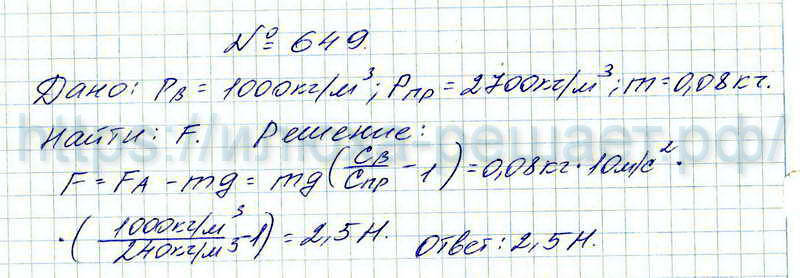 № 649.
Дано: ρв = 1000кг/м³; ρпр = 2700кг/м³; m = 0,08кг.
Найти: F. Решение:
F = FA - mg = mg (Cв/Cпр - 1) = 0,08кг · 10м/с² ·
· (1000кг/м³/240кг/м³ - 1) = 2,5Н. Ответ: 2,5Н.